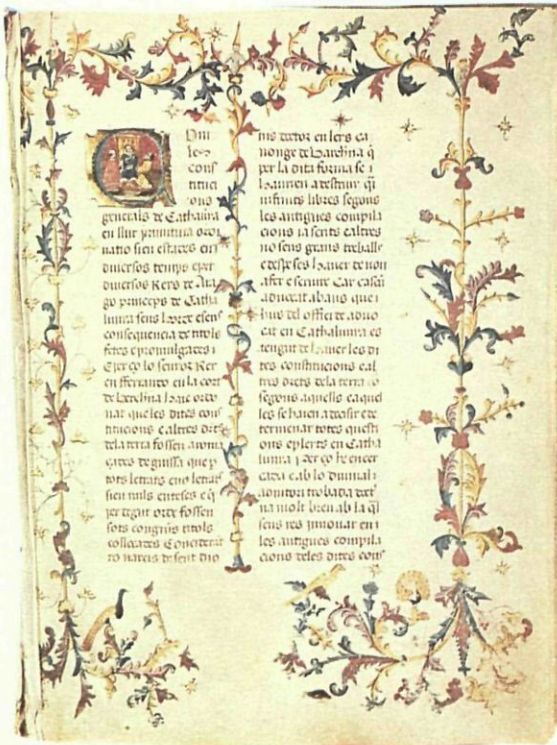 les
cons
titucj
ons
generals de Cathalunya
en llur primitiua ordi
natio sien estades en
diuersos temps e per
diuersos Reys de Ara
go princeps de Catha
lunya sens horde e sens
consequencia de titols
fetes e promulgades
E per ço lo senyor Rey
en fferrando en la cort
de Barchna haie orde
nar que les dites cons
titucions e altres drets
dela terra fossen
de guissa que p
tots letrats e no letrats
sien mils enteses e q
per degut orde fossen
sots congrus titols
collocades
ro narcis de sent dio
nis doctor en leys ca
nonge de Barchna q
per la dita forma se
hauien a destrur
infinits libres segons
les antigues compila
cions ia fents e altres
no sens grans treballs
e despeses hauer de nou
a fer e scriure Car casc
aduocat abans que
hus del offici de aduo
cat en Cathalunya es
tengut de hauer les di
tes constitucions e al
tres drets dela terra
segons aquells e aquel
les se haien a decisir e de
termenar totes questi
ons e plets en Catha
lunya per ço he encer
cada e ab lo diuinal
adiutori trobada
na molt breu ab la ql
sens res innouar en
les antigues compila
cions deles dites cons